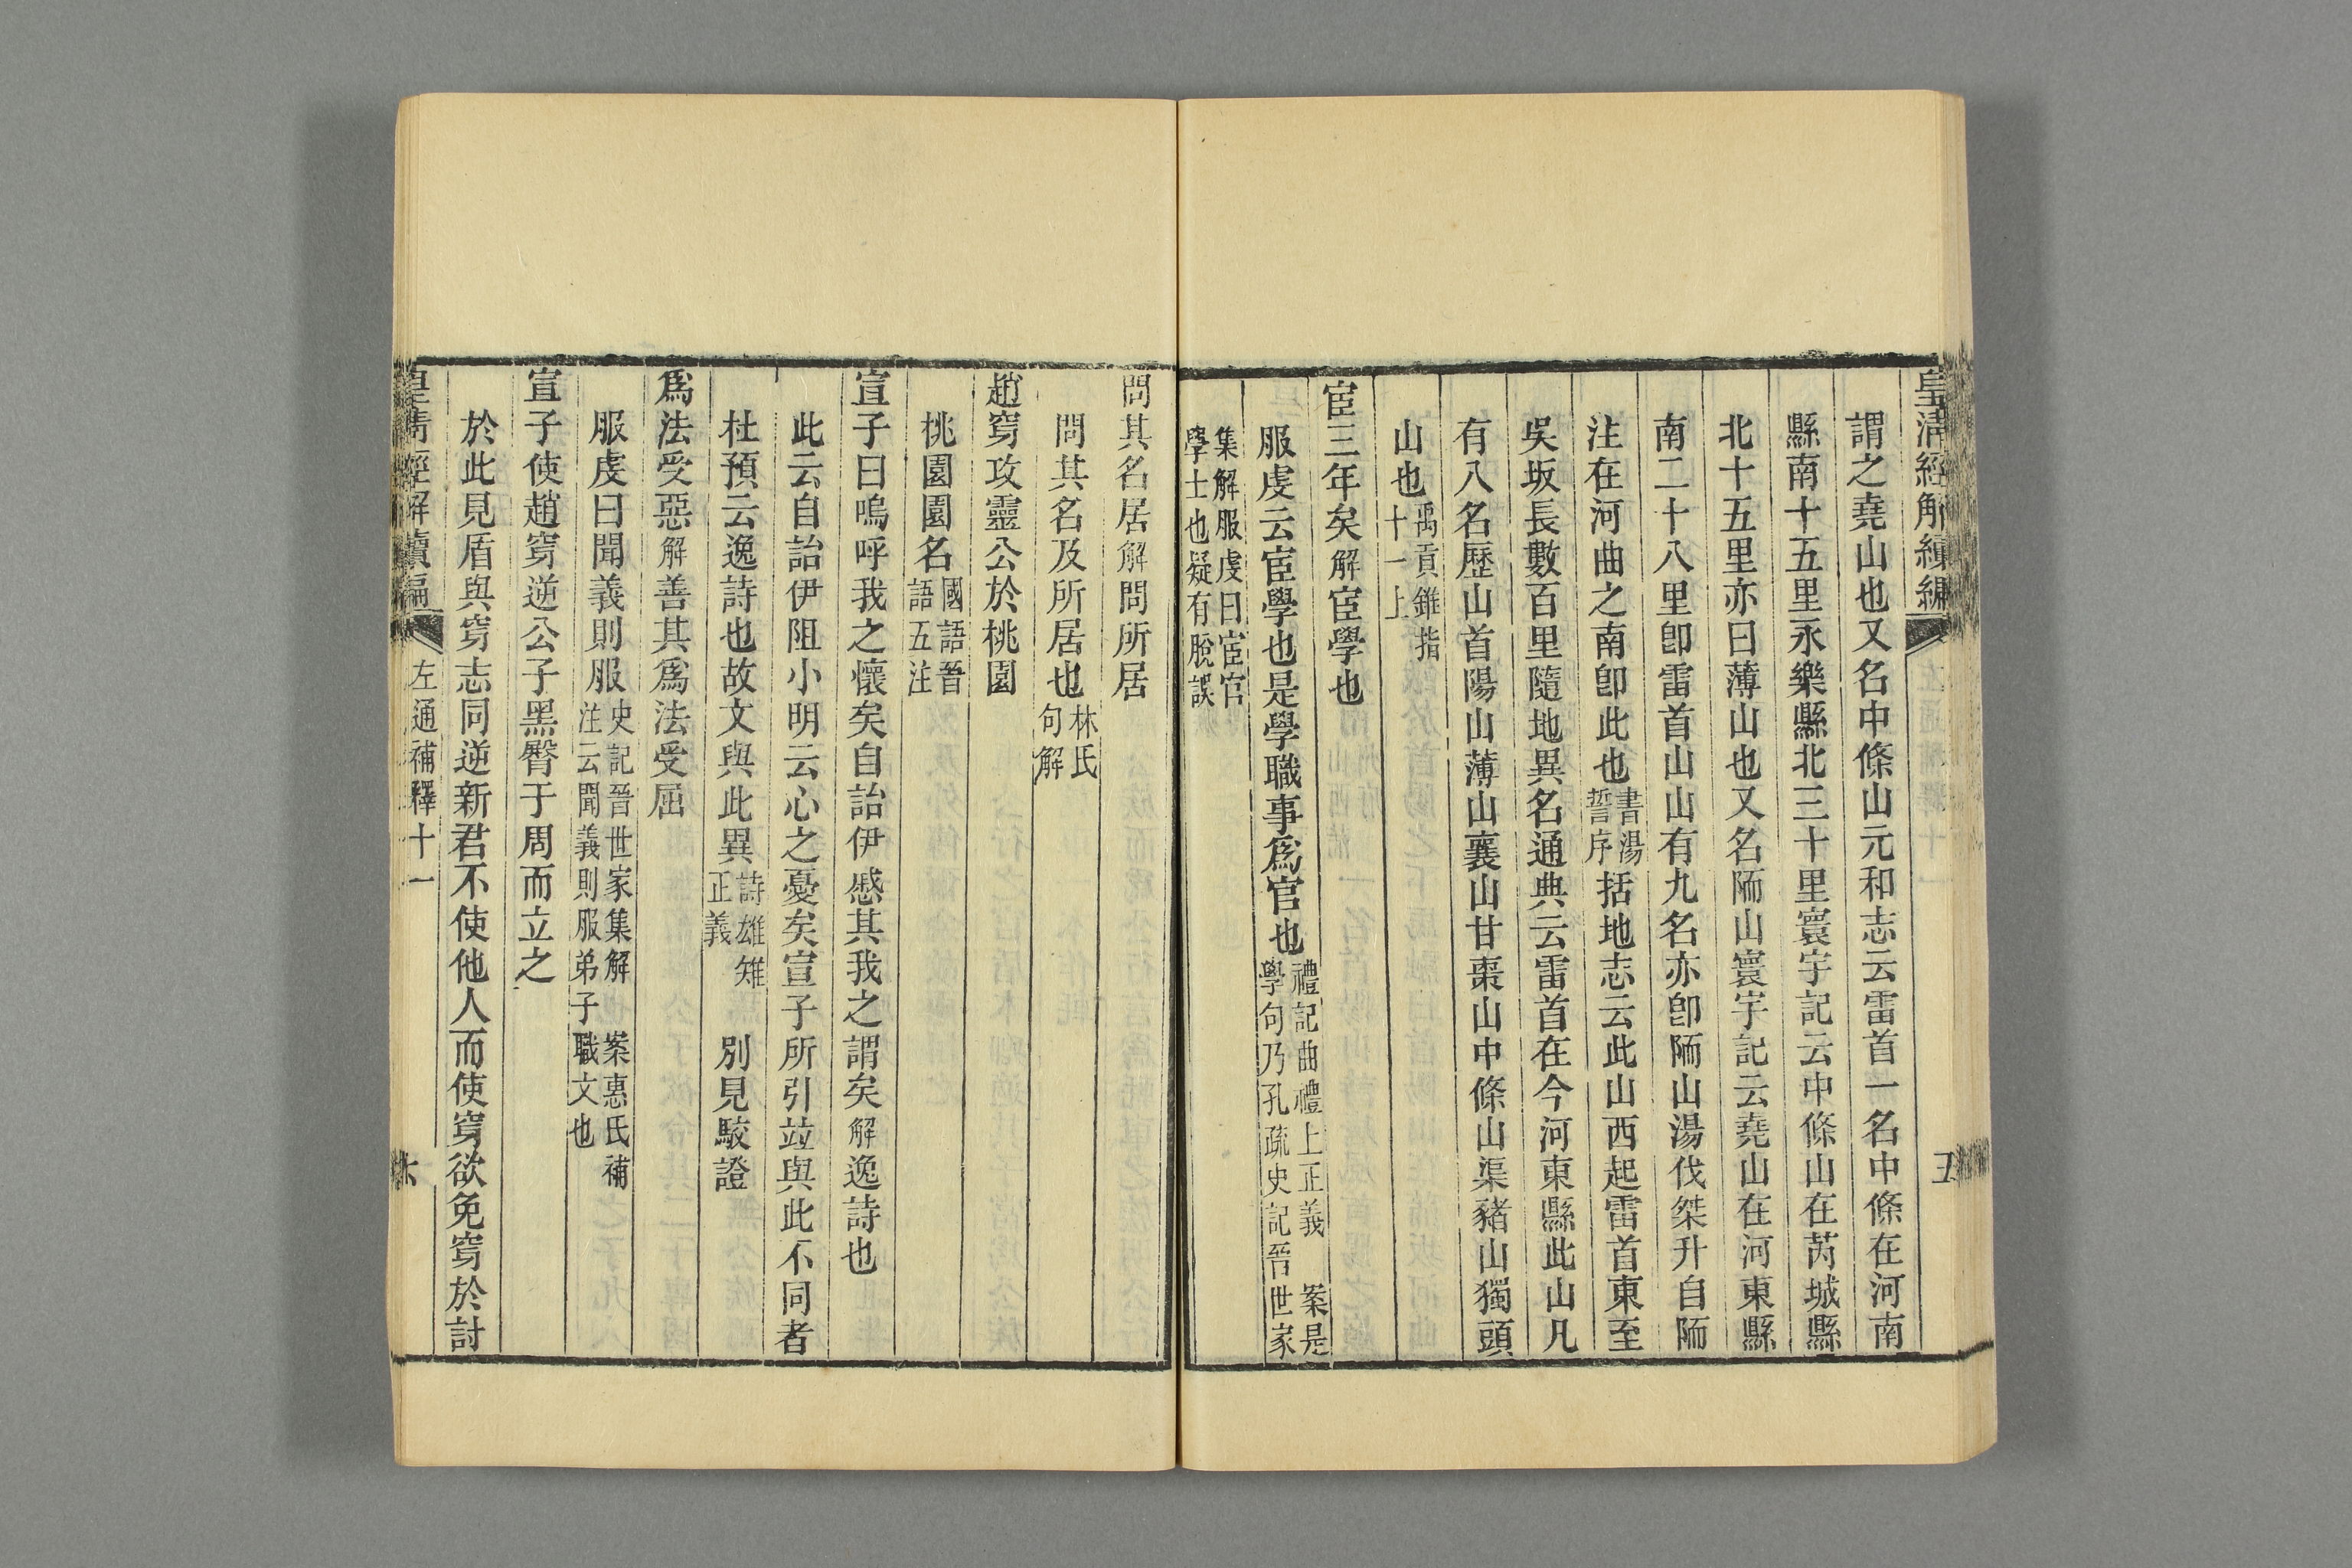 皇清經解續編
五
謂之堯山也又名中條山元和志云雷首一名中條在河南
縣南十五里永樂縣北三十里寰宇記云中條山在芮城縣
北十五里亦曰薄山也又名陑山寰宇記云堯山在河東縣
南二十八里卽雷首山山有九名亦卽陑山湯伐桀升自陑
注在河曲之南卽此也書湯誓序括地志云此山西起雷首東至
吳坂長數百里隨地異名通典云雷首在今河東縣此山凡
有八名歷山首陽山薄山襄山甘棗山中條山渠豬山獨頭
山也禹貢錐指十一上
宦三年矣解宦學也
服虔云宦學也是學職事爲官也禮記曲禮上正義 案是學句乃孔疏史記晉世家
集解服虔曰宦官學士也疑有脫誤
問其名居解問所居
問其名及所居也林氏句解
趙穿攻靈公於桃園
桃園園名國語晉語五注
宣子曰嗚呼我之懷矣自詒伊慼其我之謂矣解逸詩也
此云自詒伊阻小明云心之憂矣宣子所引竝與此不同者
杜預云逸詩也故文與此異詩雄雉正義 別見駮證
爲法受惡解善其爲法受屈
服虔曰聞義則服史記晉世家集解 案惠氏補注云聞義則服弟子職文也
宣子使趙穿逆公子黑臀于周而立之
於此見盾與穿志同逆新君不使他人而使穿欲免穿於討
皇清經解續編
左通補釋十一
六